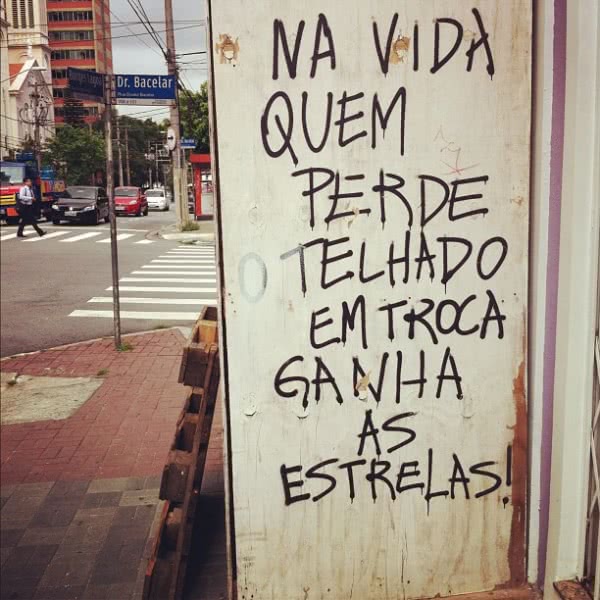 Dr. Bacelar
NA VIDA
QUEM
PERDE
O TELHADO
EM TROCA
GANHA
AS
ESTRELAS!